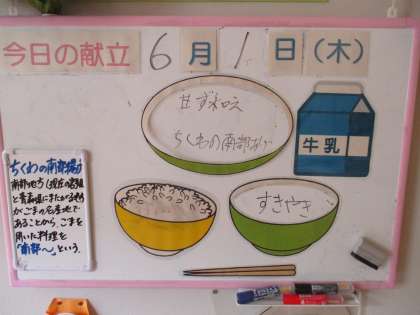 今日の献立 6月1日(木)
甘ずあえ
ちくわの南部あげ
牛乳
すきやき
ちくわの南部揚げ
南部地方(現在の岩手県
と青森県にまたがる地域)
がごまの名産地で
あることから、ごまを
用いた料理を
「南部〜」という。